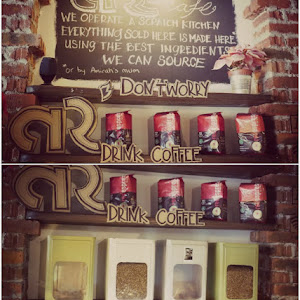 cafe
WE OPERATE A SCRATCH KITCHEN
EVERYTHING SOLD HERE IS MADE HERE
USING THE BEST INGREDIENTS
WE CAN SOURCE
*or by Amirah's mum
DON'T WORRY
AR
DRINK COFFEE
AR
DRINK COFFEE